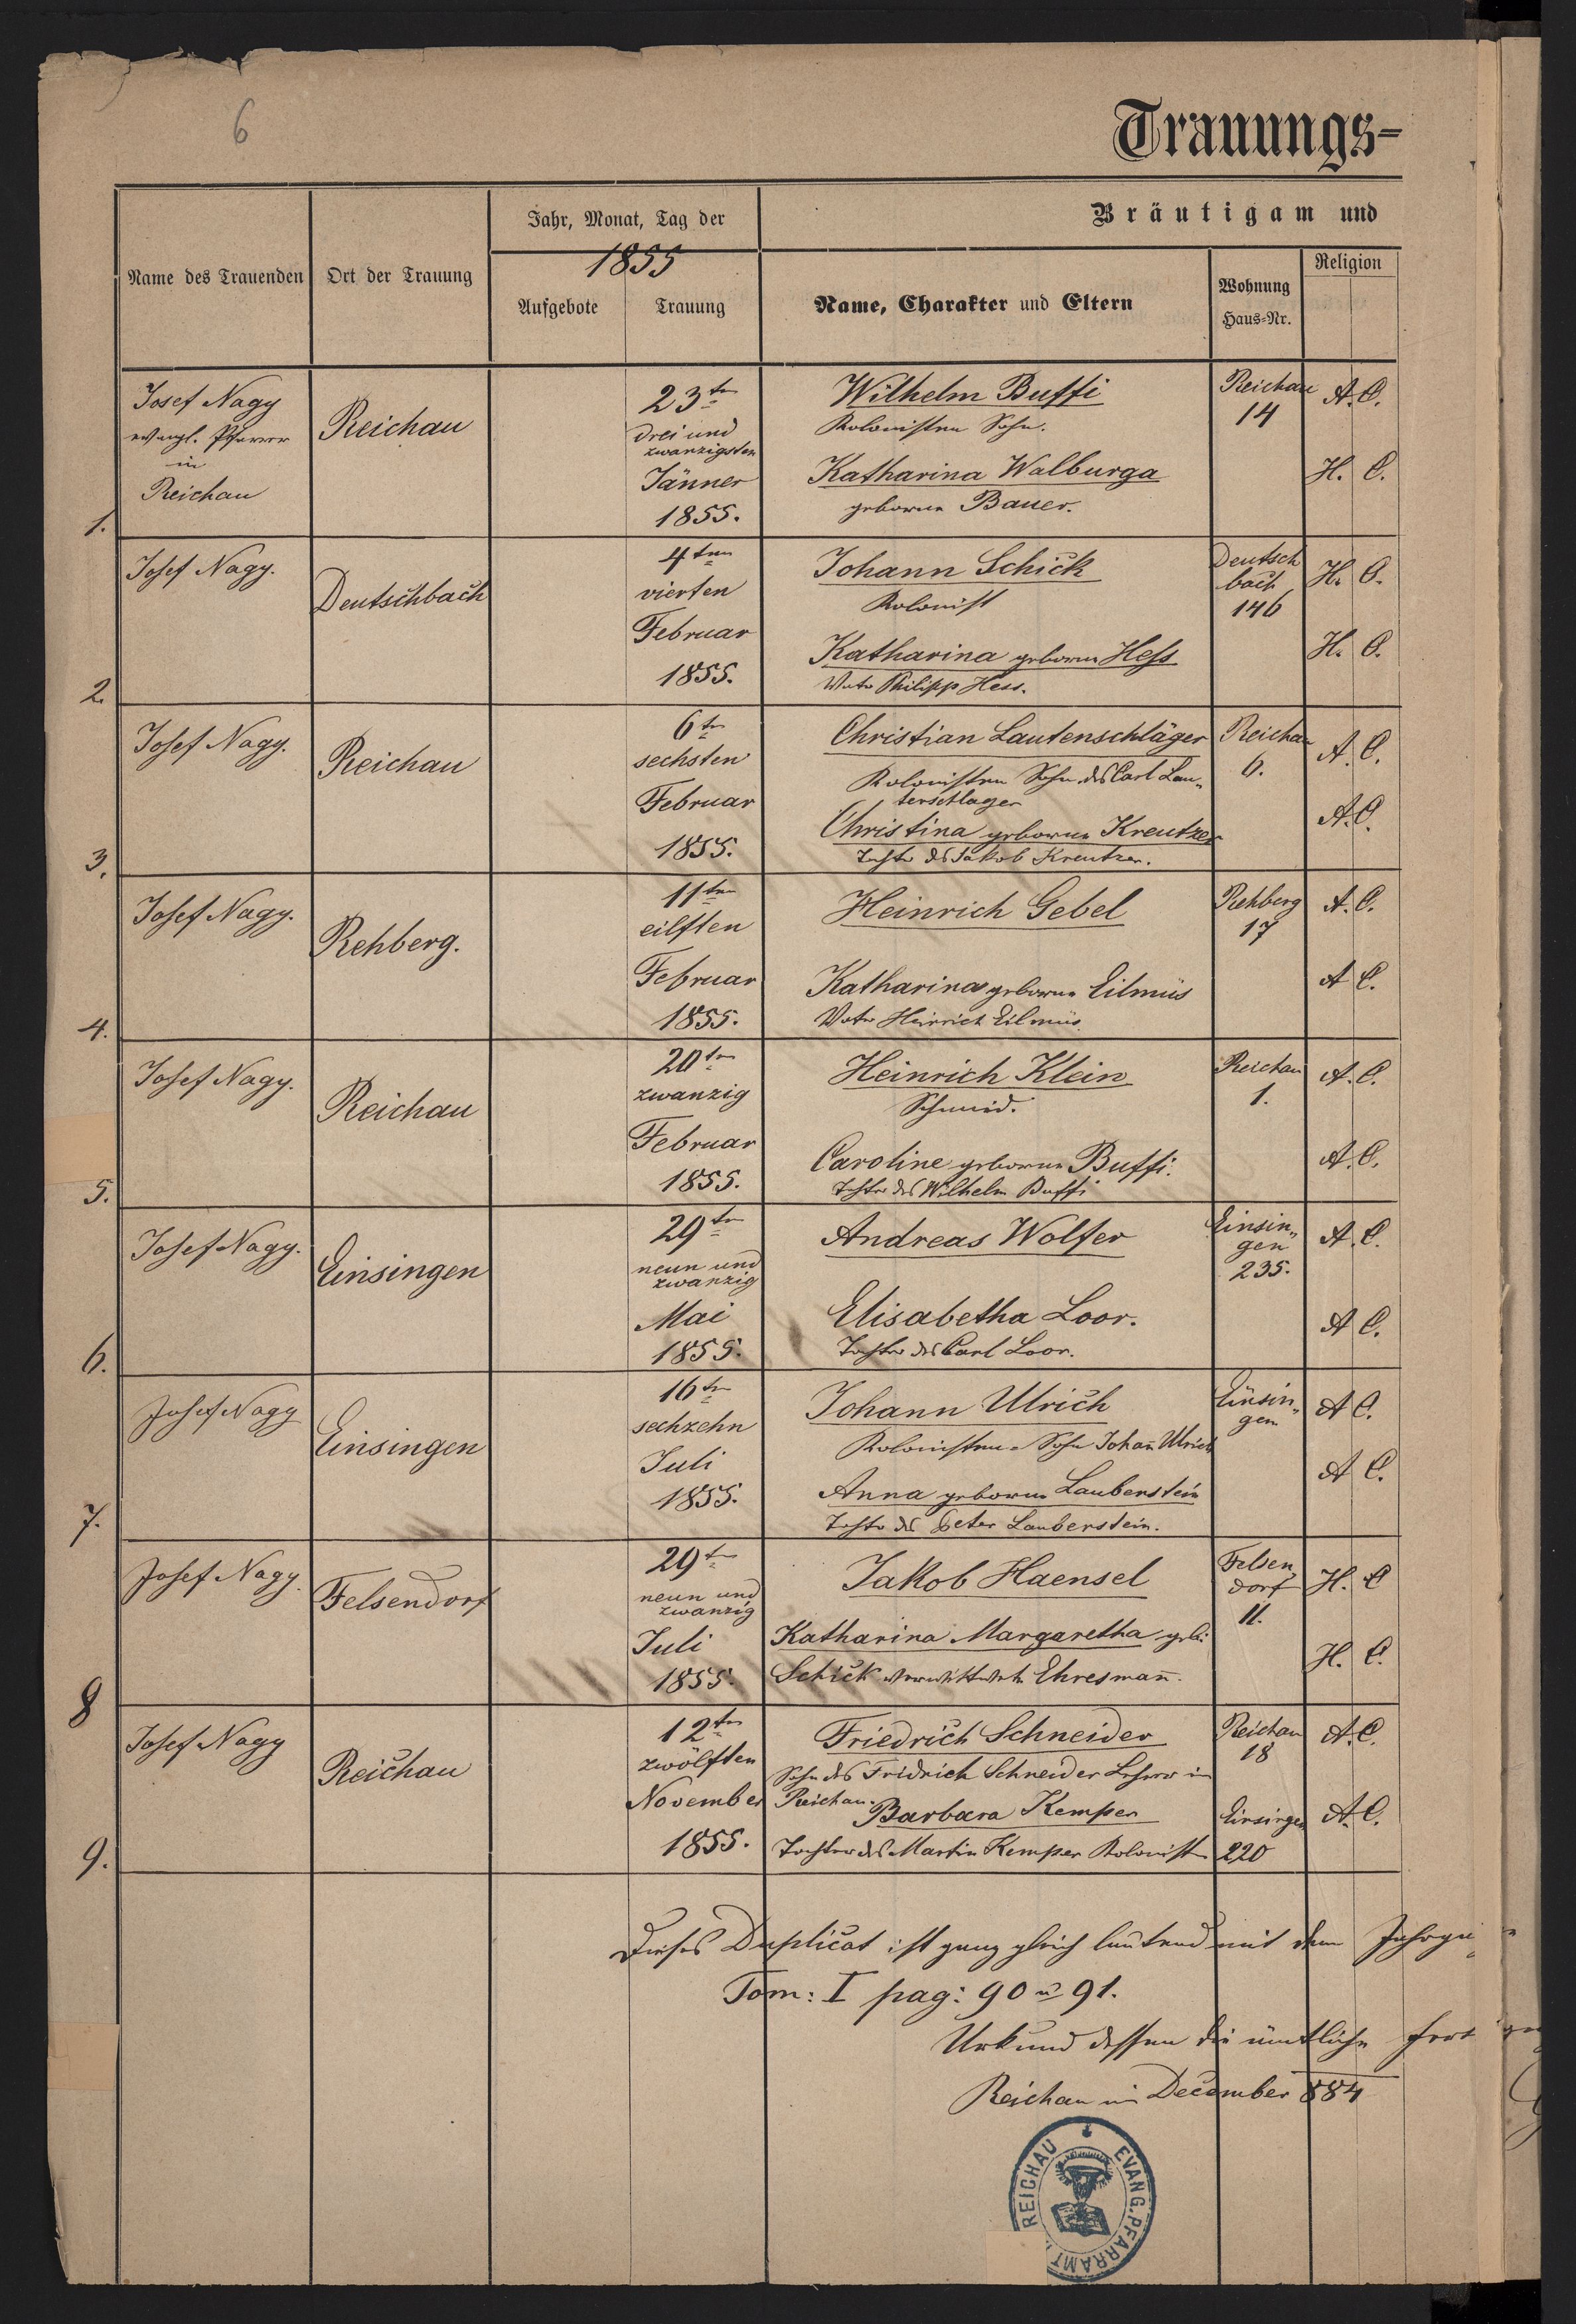 6
Trauungs-
Jahr, Monat, Tag der
Bräutigam und
1855
Name des Trauenden
Ort der Trauung
Aufgebote
Trauung
Name, Charakter und Eltern
Wohnung
Haus-Nr.
Religion
1.
Josef Nagy
evangl. Pfarrer
in
Reichau
Reichau
23ten
drei und
zwanzigsten
Jänner
1855.
Wilhelm Buffi
Kolonisten Sohn.
Katharina Walburga
geborne Bauer.
Reichau
14
A. C.
H. C.
2.
Josef Nagy.
Deutschbach
4ten
vierten
Februar
1855.
Johann Schick
Kolonist
Katharina geborne Hess
Vater Philipp Hess.
Deutsch
bach
146
H. C.
H. C.
3.
Josef Nagy.
Reichau
6ten
sechsten
Februar
1855.
Christian Lautenschläger
Kolonisten Sohn des Carl Lau„
tenschlager
Christina geborne Kreutzer
Tochter des Jakob Kreutzer.
Reichau
6.
A. C.
A. C.
4.
Josef Nagy.
Rehberg.
11ten
eilften
Februar
1855.
Heinrich Gebel
Katharina geborne Eilmüs
Vater Heinrich Eilmüs
Rehberg
17
A. C.
A C.
5.
Josef Nagy.
Reichau
20ten
zwanzig
Februar
1855.
Heinrich Klein
Schmid.
Caroline geborne Buffi.
Tochter des Wilhelm Buffi
Reichau
1.
A. C.
A. C.
6.
Josef Nagy.
Einsingen
29ten
neun und
zwanzig
Mai
1855.
Andreas Wolfer
Elisabetha Loor.
Tochter des Carl Loor.
Einsin„
gen
235.
A. C.
A C.
7.
Josef Nagy
Einsingen
16ten
sechzehn
Juli
1855.
Johann Ulrich
Kolonisten-Sohn Johañ Ulrich
Anna geborne Laubenstein
Tochter des Peter Laubenstein.
Einsin„
gen
A C.
A C.
8
Josef Nagy.
Felsendorf
29ten
neun und
zwanzig
Juli
1855.
Jakob Haensel
Katharina Margaretha geb:
Schick verwittwete Ehresmañ.
Felsen
dorf
11.
H. C
H. C.
9.
Josef Nagy
Reichau
12ten
zwölften
November
1855.
Friedrich Schneider
Sohn des Fridrich Schneider Lehrer in
Reichau.
Barbara Kemper
Tochter des Martin Kemper Kolonisten
Reichau
18
Einsingen
220
A. C.
A. C.
Dieses Duplicat ist ganz gleich lautend mit dem
Tom: I pag: 90 u 91.
Urkund dessen die ämtliche
Reichau im December 884
REICHAU EVANG. PFARRAMT